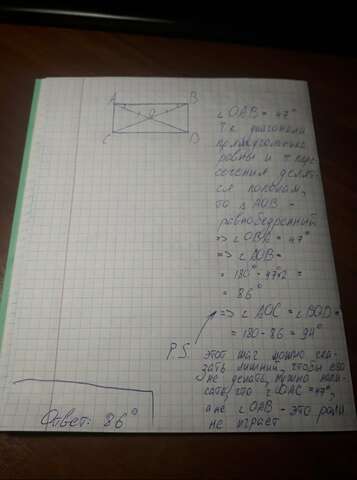 A B
O
C D
∠ OAB = 47°
Т.к диагонали
прямоугольника
равны и т. пере-
сечения делят-
ся пополам,
то △ AOB -
равнобедренный
=> ∠ OBA = 47°
=> ∠ AOB =
180° - 47·2 =
= 86°
=> ∠ AOC = ∠ BOD =
= 180 - 86 = 94°
P.S. этот шаг можно ска-
зать лишний, чтобы его
не делать, нужно напи-
сать, что ∠ OAC = 47°,
а не ∠ OAB - это роли
не играет
Ответ: 86°